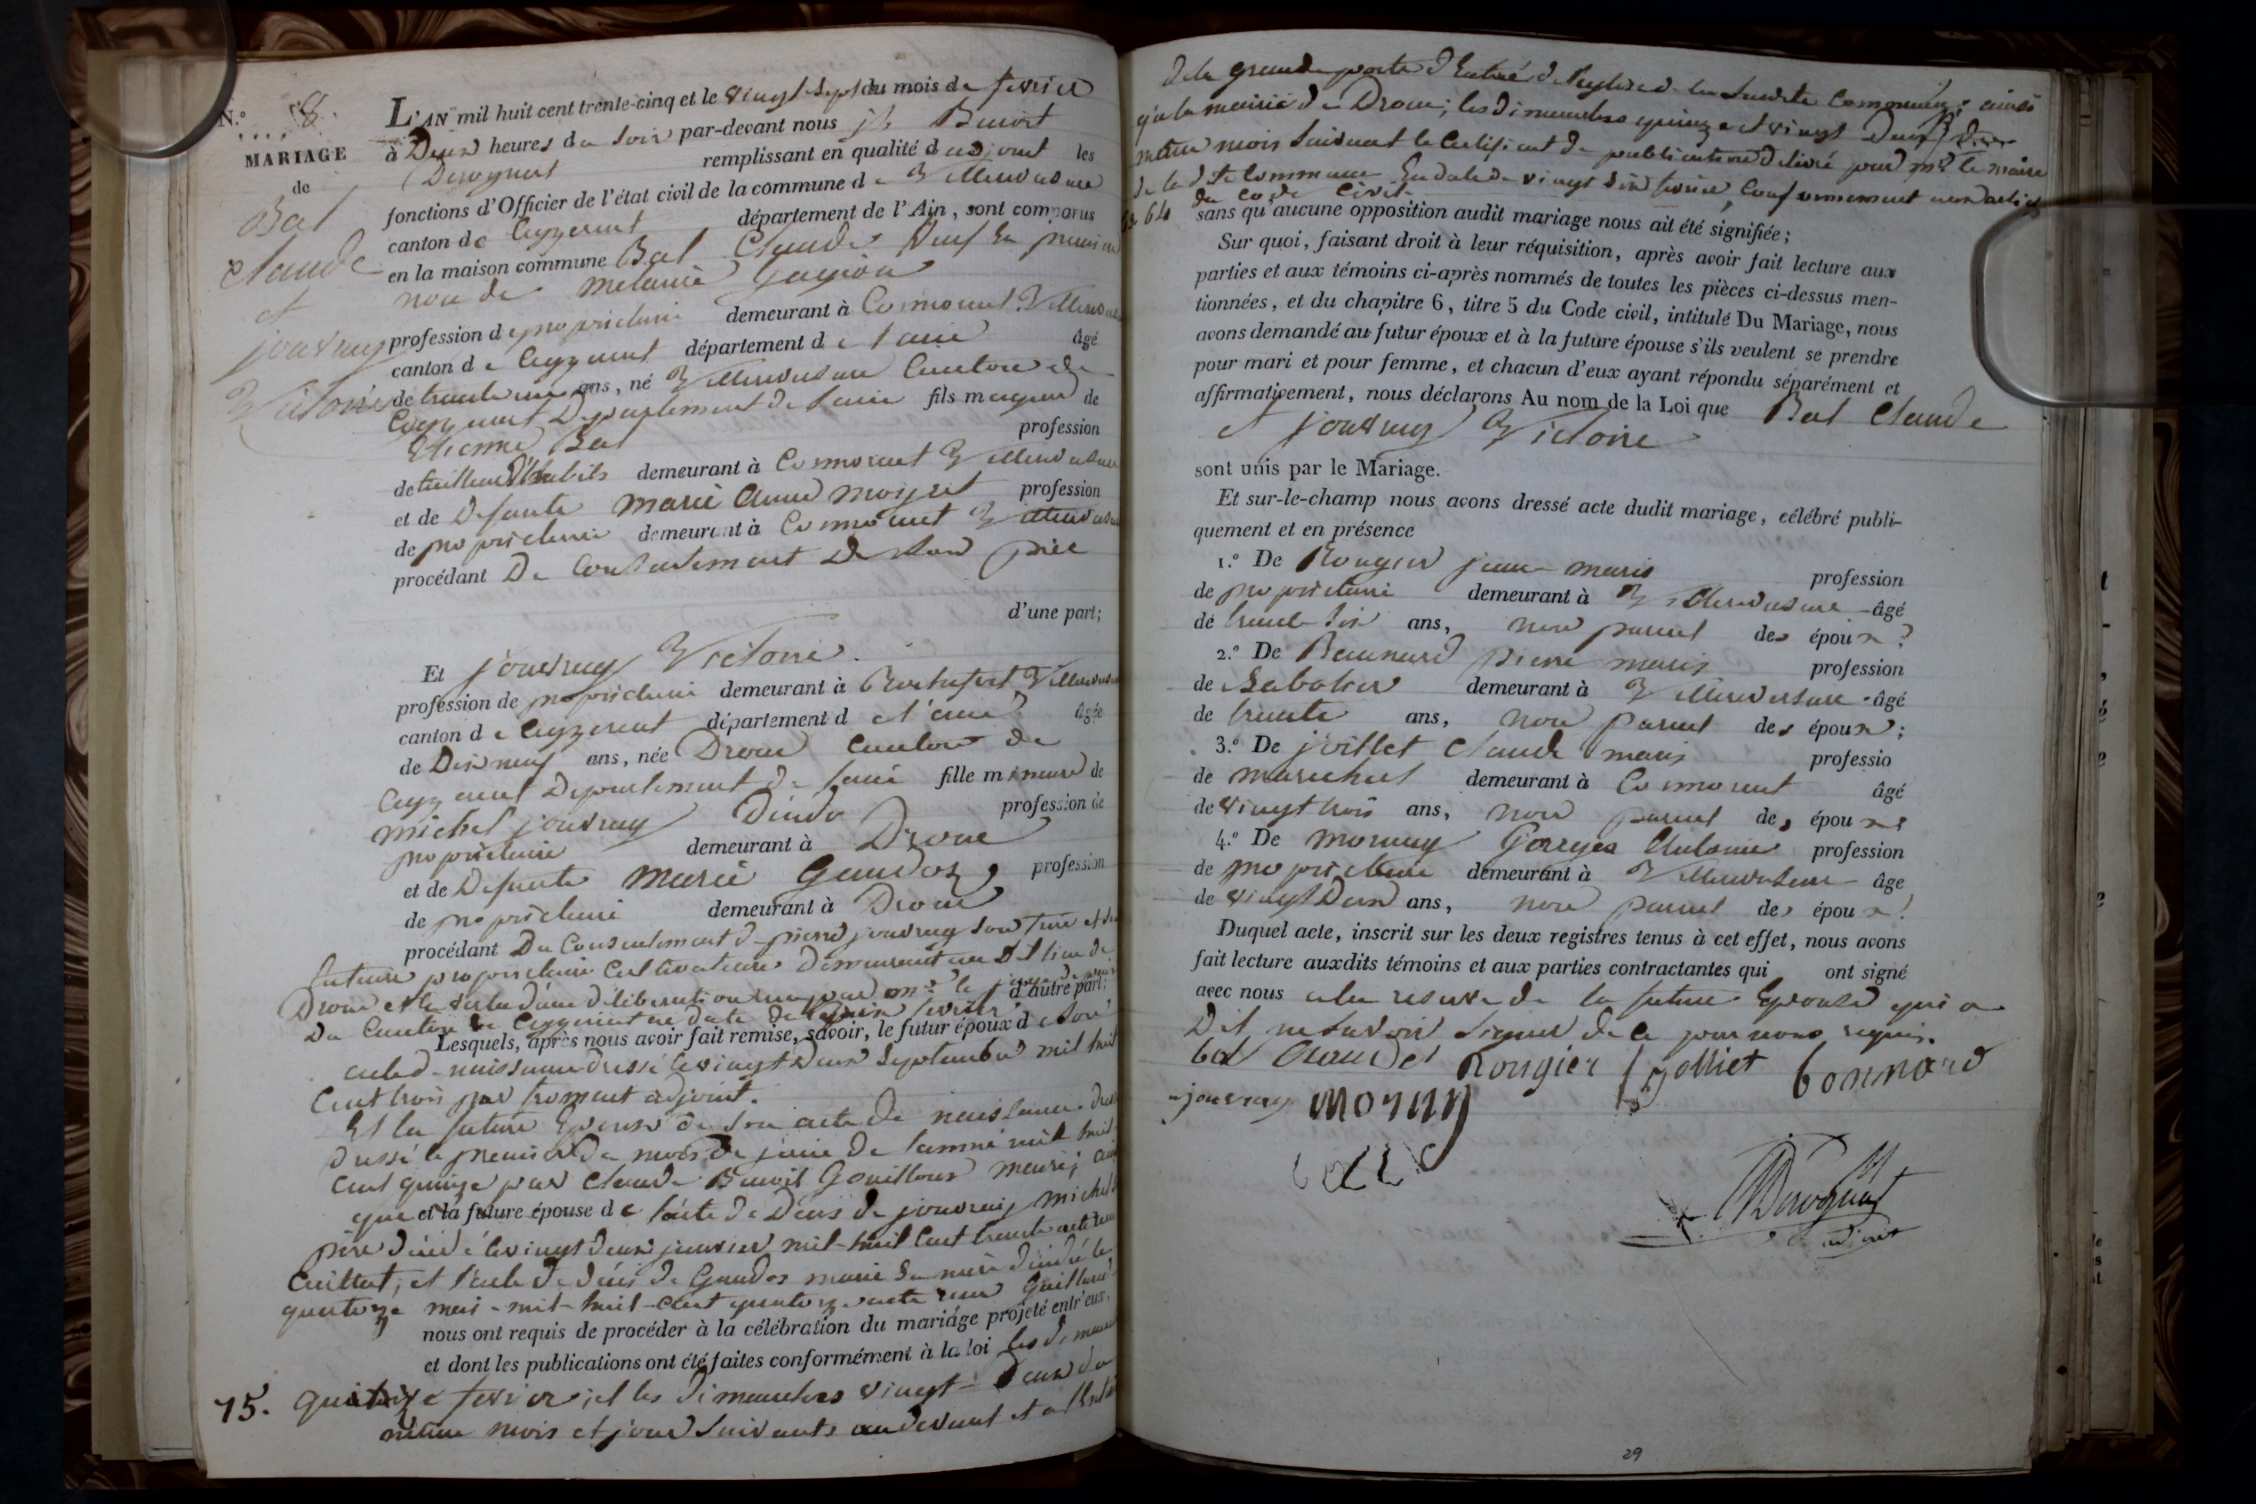 N.º 8
MARIAGE
de
Bal
Claude
et
jouvray
Victoire
L'AN mil huit cent trente-cinq et le vingt sept du mois de fevrier
à Deux heures du soir par-devant nous jh Benoit
remplissant en qualité d adjoint les
fonctions d'Officier de l'état civil de la commune de Villereversure
canton de Ceyzeriat département de l'Ain, sont comparus
en la maison commune Bal Claude veuf en premier
noce de melanie
profession de propriétaire demeurant à Cormorent Villerev
canton de Ceyzeriat département de l'ain âgé
de trente un ans, né Villereversure Canton de
Ceyzeriat Departement de l'ain fils majeur de
Etienne Bal profession
de tailleur D'habits demeurant à Cormorent Villereversure
et de Defunte marie anne moyret profession
de propriétaire demeurant à Cormorent Villereversure
procédant Du Consentement De son père
d'une part;
Et jouvray Victoire.
profession de propriétaire demeurant à Rochefort Villerev
canton de Ceyzeriat département de l'ain âgée
de Dix neuf ans, née Drom Canton de
Ceyzeriat Departement de l'ain fille mineure de
michel jouvray profession de
propriétaire demeurant à Drom
et de Defunte marie Gaudoz, profession
de propriétaire demeurant à Drom
procédant Du Consentement de pierre jouvray son frere et
tuteur propriétaire Cultivateur Demeurant au Dit lieu de
Drom et en vertu d'une délibération par mr le juge de paix
Du Canton de Ceyzeriat en date de fevrier d'autre part;
Lesquels, après nous avoir fait remise, savoir, le futur époux de son
acte de naissance dressé le vingt Deux Septembre mil huit
Cent trois par froment adjoint.
Et la future Epouse de son acte de naissance
Dressé le premier du mois de juin de l'année mil huit
cent quinze par Claude Benoit Gouilloux maire; ain
que et la future épouse de l'acte de Décès de jouvray michel
père décédé le vingt deux janvier mil-huit Cent trente acte
et l'acte de décès de Gaudos marie sa mère décédé le
quatorze mai-mil-huit-cent quatorze acte
nous ont requis de procéder à la célébration du mariage projeté entr'eux,
et dont les publications ont été faites conformément à la loi les dimanches
15. quinze fevrier; et les Dimanches vingt-Deux du
même mois et jour suivants au devant et a l'Entré
de la grande porte d'Entrée de l'eglise de la susdite commune; ainsi
qu'a la mairie de Drom; les dimanches quinze et vingt Deux du
même mois suivant le Certificat de publication délivré par mr le maire
de la dte Commune En date de vingt six fevrier, Conformement aux articles
63. 64 du code Civil
sans qu'aucune opposition audit mariage nous ait été signifiée;
Sur quoi, faisant droit à leur réquisition, après avoir fait lecture aux
parties et aux témoins ci-après nommés de toutes les pièces ci-dessus men-
tionnées, et du chapitre 6, titre 5 du Code civil, intitulé Du Mariage, nous
avons demandé au futur époux et à la future épouse s'ils veulent se prendre
pour mari et pour femme, et chacun d'eux ayant répondu séparément et
affirmativement, nous déclarons Au nom de la Loi que Bal Claude
et jouvray Victoire
sont unis par le Mariage.
Et sur-le-champ nous avons dressé acte dudit mariage, célébré publi-
quement et en présence
1.º De Rougier jean-marie profession
de propriétaire demeurant à Villereversure âgé
de trente six ans, non parent des époux;
2.º De Beaunard pierre marie profession
de sabotier demeurant à Villereversure âgé
de trente ans, non parent des époux;
3.º De joillet Claude marie professio
de marechal demeurant à Cormorent âgé
de vingt trois ans, non parent des époux;
4.º De mornay Georges Antoine profession
de propriétaire demeurant à Villereversure âgé
de vingt Deux ans, non parent des époux;
Duquel acte, inscrit sur les deux registres tenus à cet effet, nous avons
fait lecture auxdits témoins et aux parties contractantes qui ont signé
avec nous a la reserve de la future Epouse qui a
Dit ne savoir signer de ce par nous requis.
bal Claude Rougier jolliet bonnard
jouvray mornay
adjoint
29